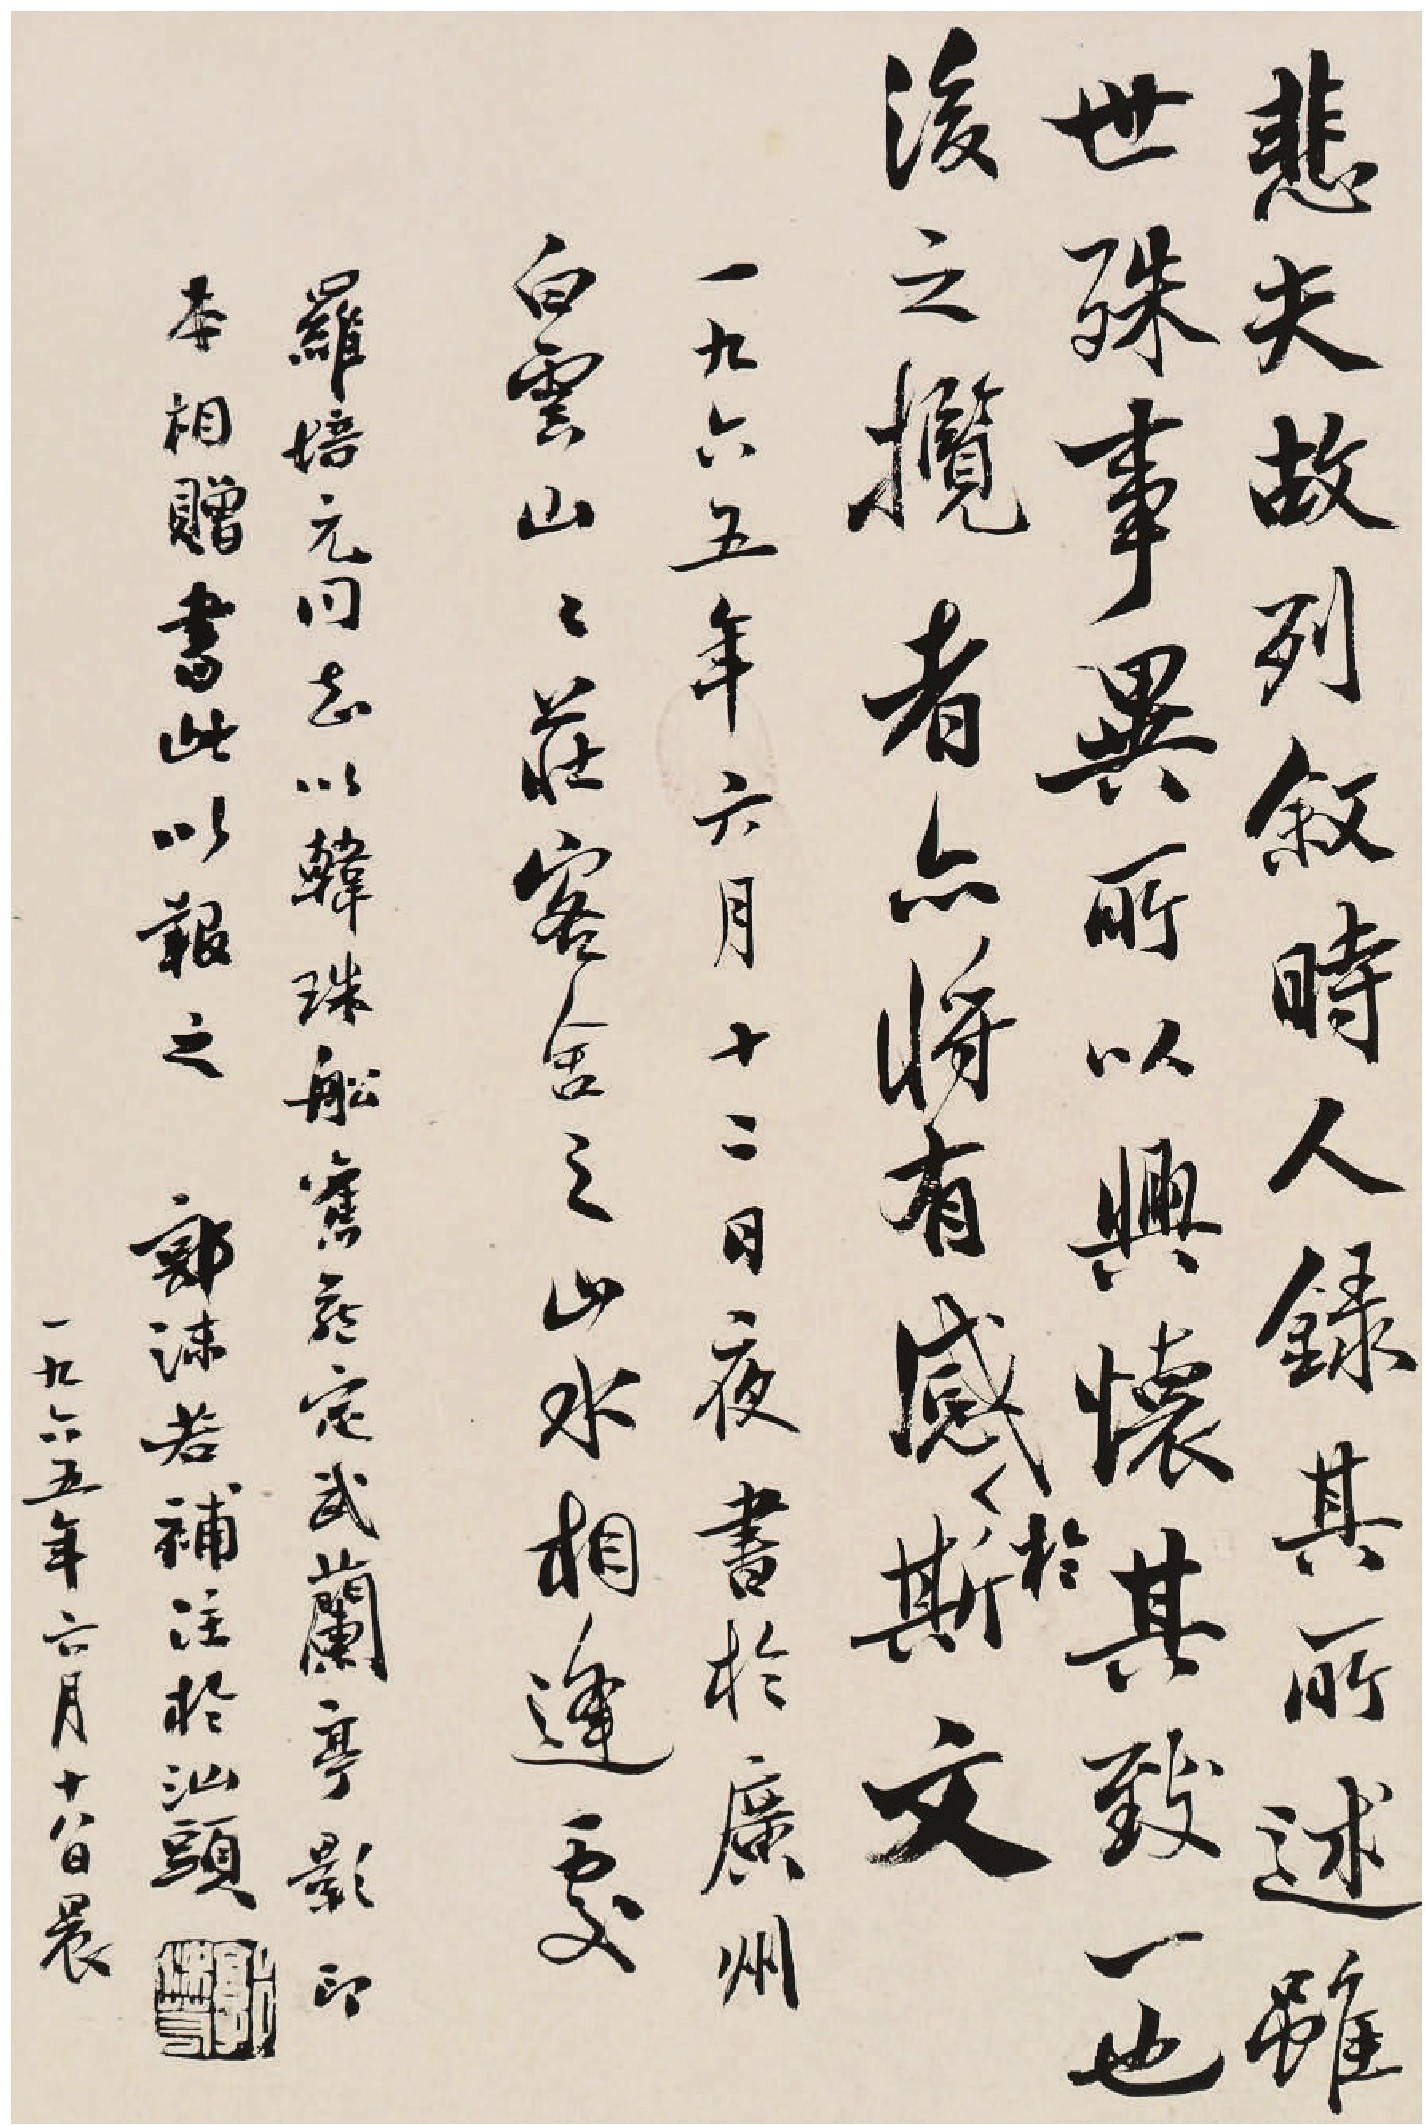 悲夫故列叙時人録其所述雖
世殊事異所以興懷其致一也
後之攬者亦將有感〻於斯文
一九六五年六月十二日夜書於廣州
白雲山〻莊客舍之山水相逢處
羅培元同志以韓珠船舊藏定武蘭亭影印
本相贈書此以報之 郭沫若補注於汕頭
一九六五年六月十八日晨